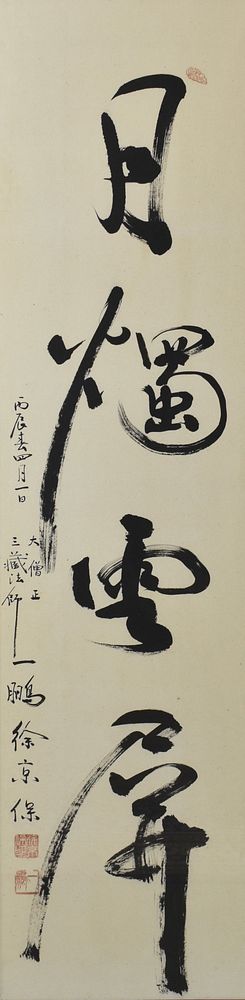 月燭雲屏
丙辰春四月一日
大僧正
三藏法師 一鵬 徐京保